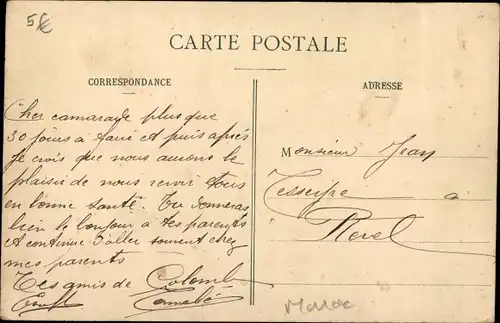 5€
CARTE POSTALE
CORRESPONDANCE
Cher camarade plus que
30 jours a faire et puis après
je crois que nous aurons le
plaisir de nous revoir tous
en bonne santé. Tu donneras
bien le bonjour a tes parents
et continue d'aller souvent chez
mes parents
Tes amis de Colomb
ADRESSE
Monsieur Jean
à
Revel
Maroc